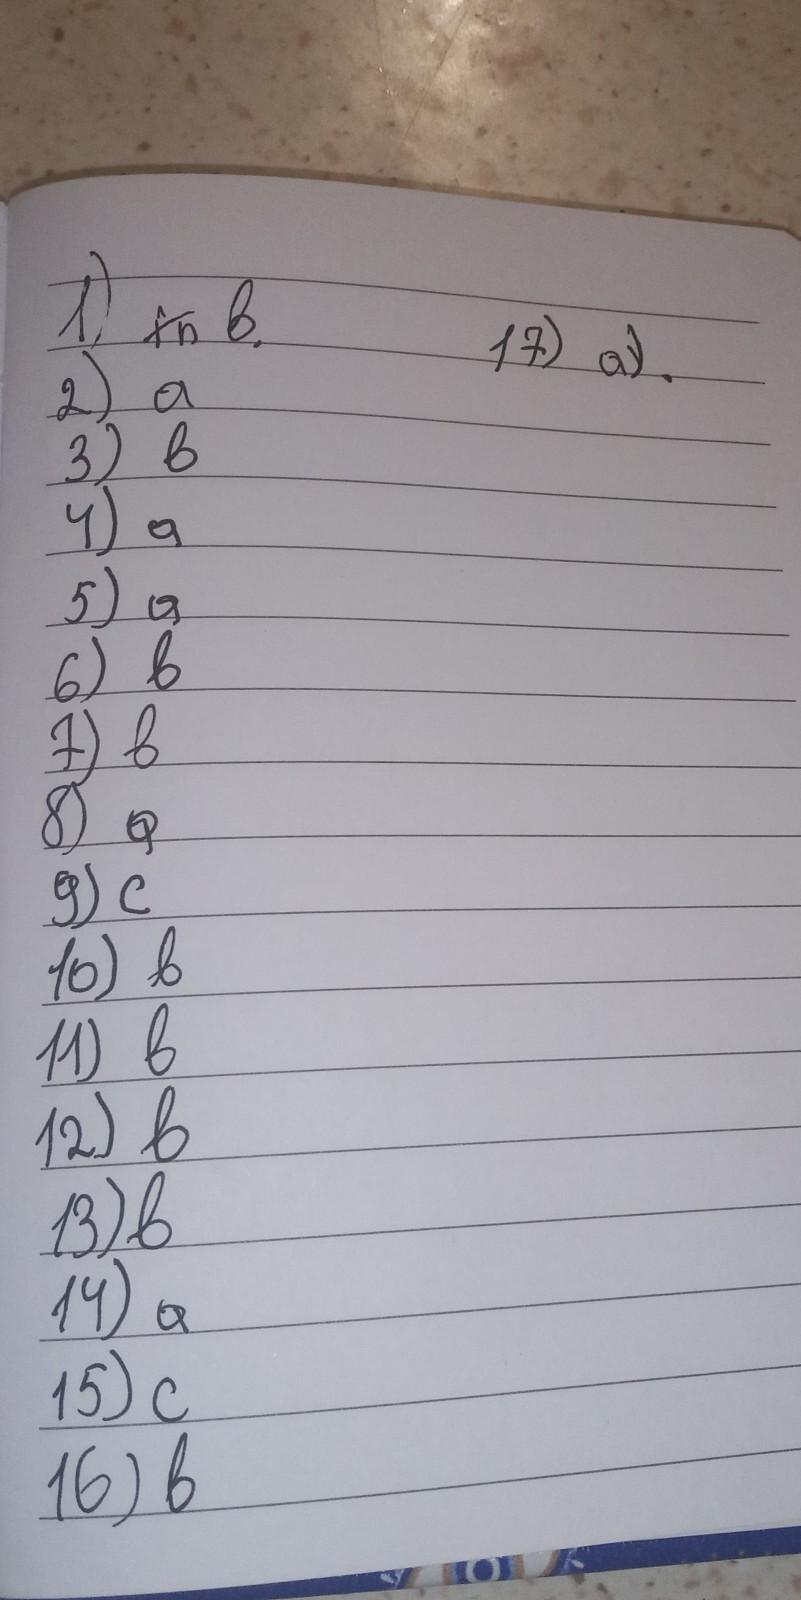 1) in b.
2) a
3) b
4) a
5) a
6) b
7) b
8) a
9) c
10) b
11) b
12) b
13) b
14) a
15) c
16) b
17) a).